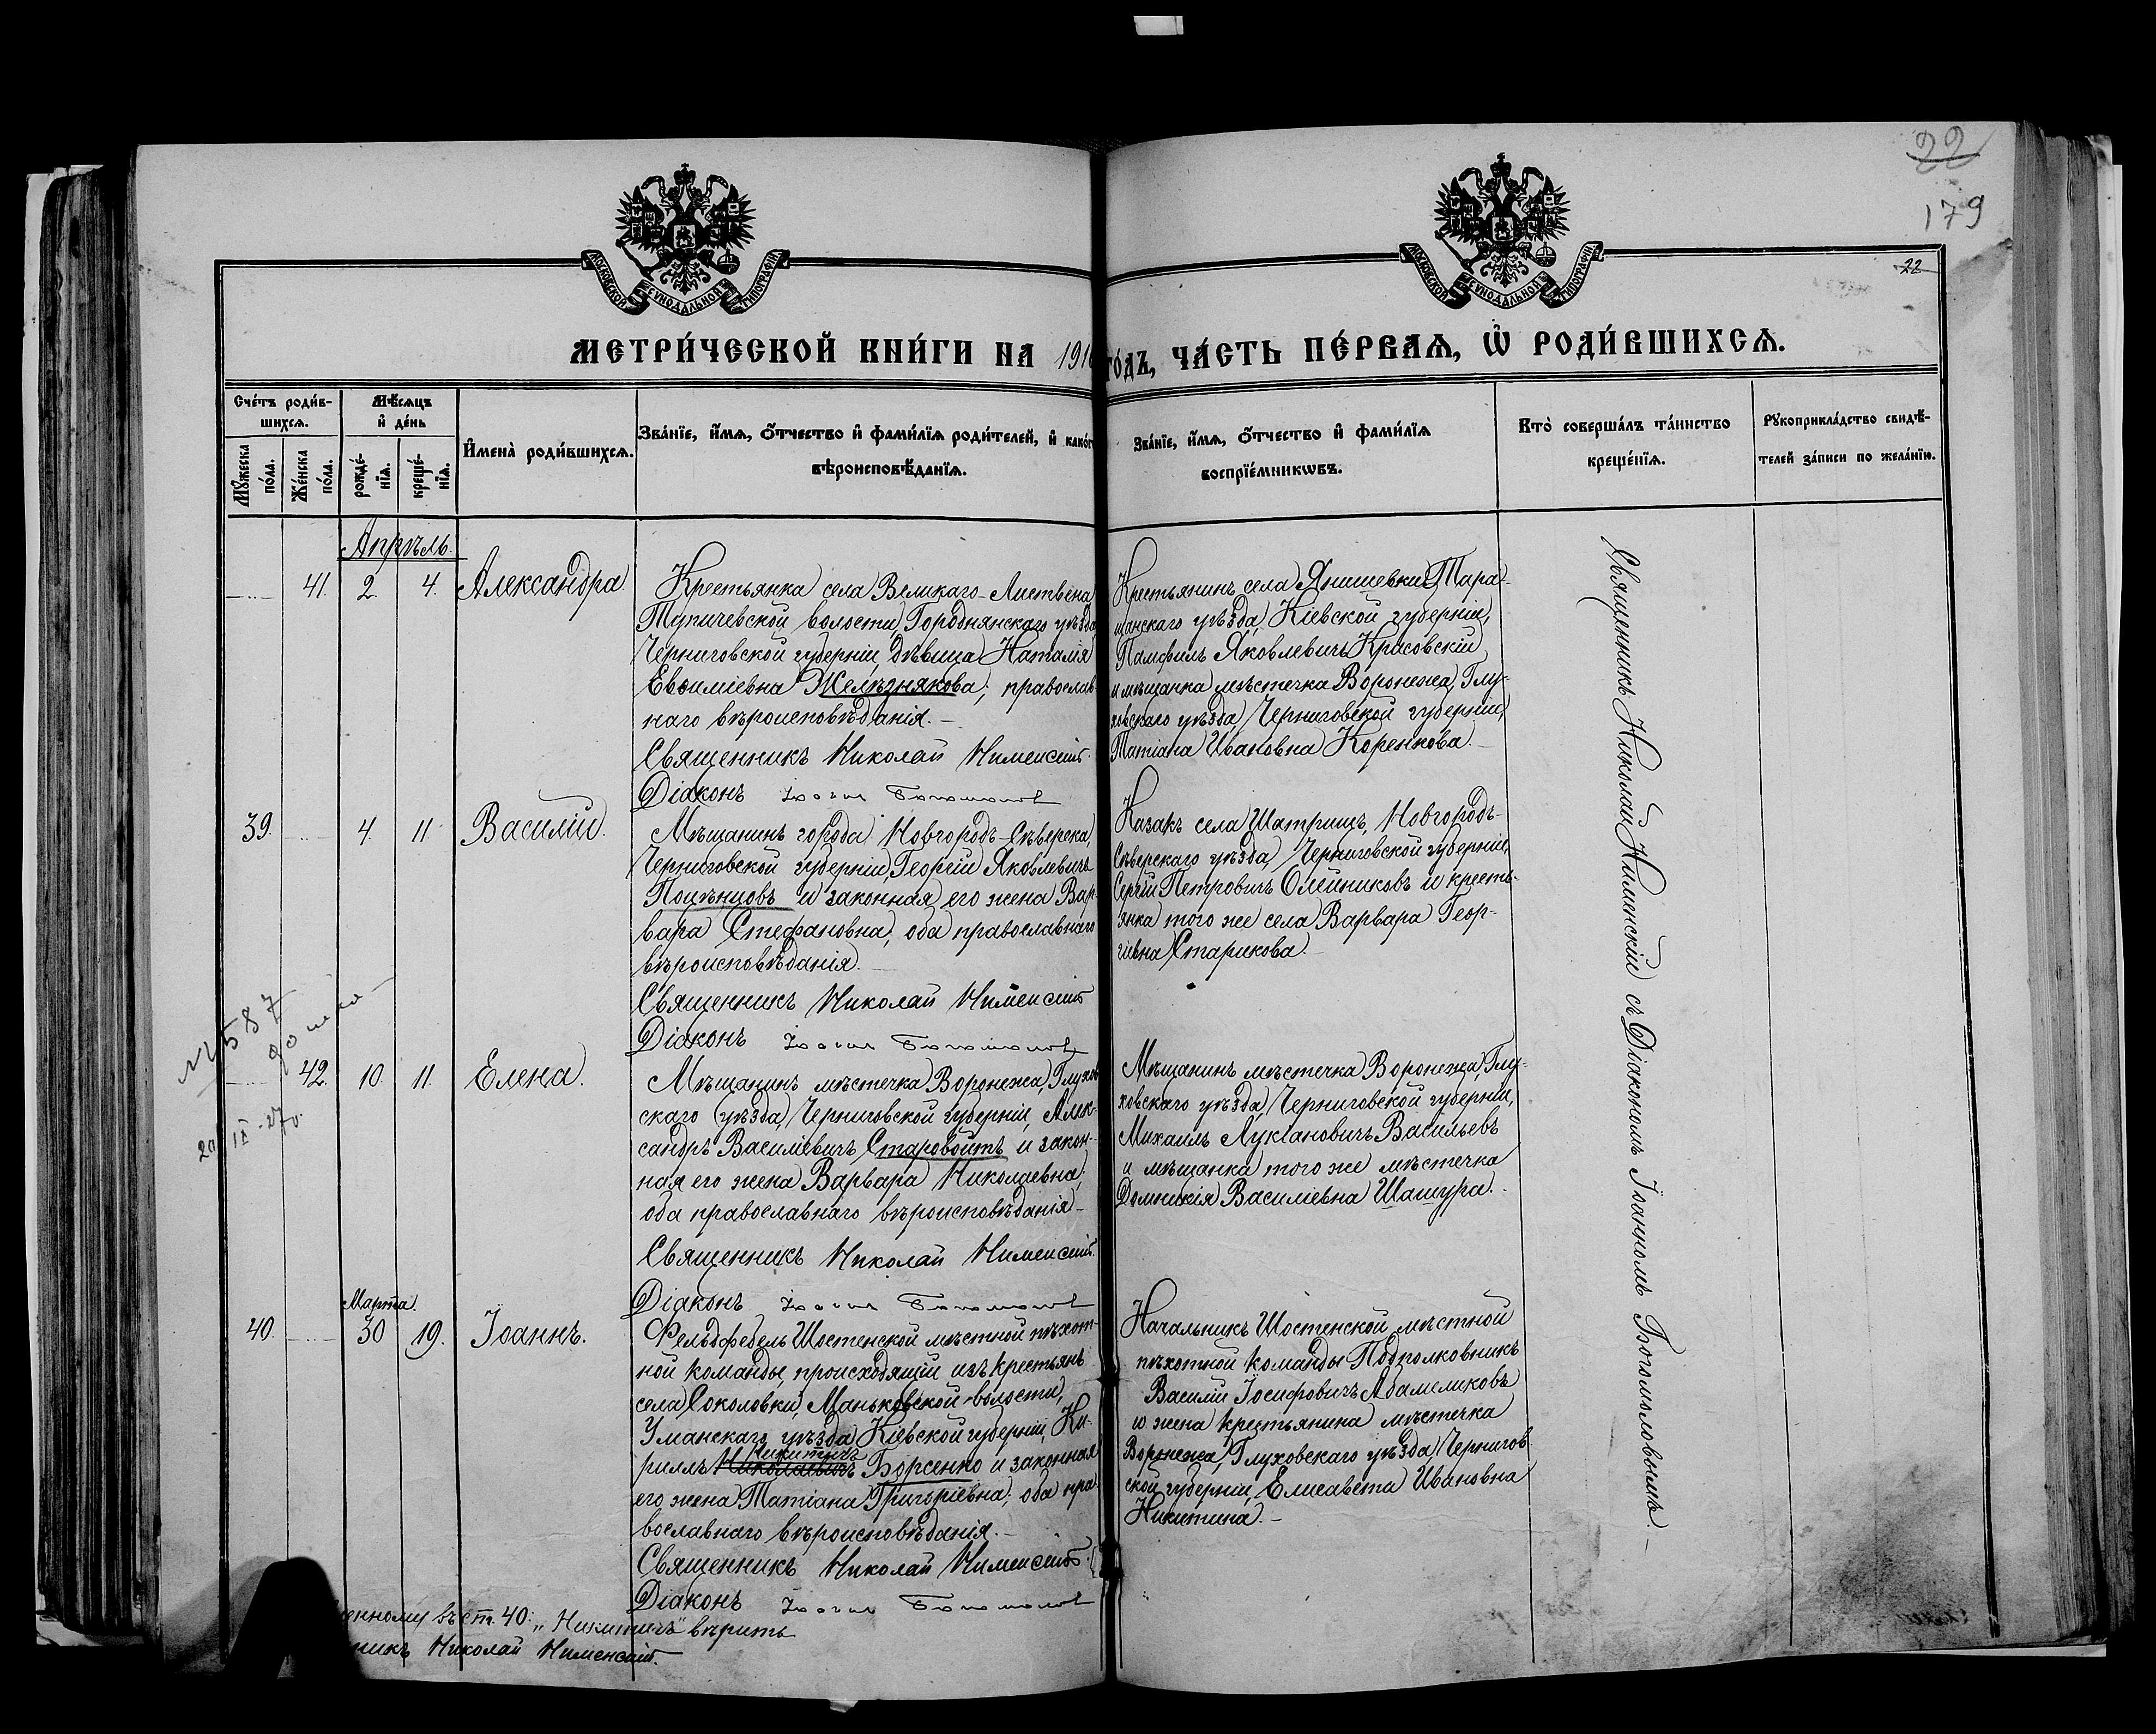 22
179
22
МОСКОВСКОЙ СѴНОДАЛЬНОЙ ТИПОГРАФІИ
МОСКОВСКОЙ СѴНОДАЛЬНОЙ ТИПОГРАФІИ
МЕТРИ́ЧЕСКОЙ КНИ́ГИ НА 191
ГО́ДЪ, ЧА́СТЬ ПЕ́РВАѦ, Ѡ҆ РОДИ́ВШИХСѦ.
Сче́тъ роди́в-
шихсѧ.
Мꙋ́жеска
по́ла.
Же́нска
по́ла.
Мѣ́сѧцъ
и҆ де́нь
рожде́-
нїѧ.
креще́-
нїѧ.
И҆мена̀ роди́вшихсѧ.
Зва́нїе, и҆́мѧ, ѻ҆́тчество и҆ фами́лїѧ роди́телей, и҆ како́г
вѣроисповѣ́данїѧ.
Зва́нїе, и҆́мѧ, ѻ҆́тчество и҆ фами́лїѧ
воспрїе́мникѡвъ.
Кто̀ соверша́лъ та́инство
креще́нїѧ.
Рꙋкоприкла́дство свидѣ́-
телей за́писи по жела́нїю.
Апрѣль.
41. 2. 4. Александра.
Крестьянка села Великаго-Листвена
Тупичевской волости, Городнянскаго уѣзда
Черниговской губерніи, дѣвица Наталія
Евѳиміевна Желѣзнякова; православ-
наго вѣроисповѣданія.-
Священникъ Николай Нименскій.
Діаконъ Іоаннъ Богомоловъ
Крестьянинъ села Янишевки, Тара-
щанскаго уѣзда, Кіевской губерніи,
Памфилъ Яковлевичъ Красовскій
и мѣщанка мѣстечка Воронежа, Глу-
ховскаго уѣзда, Черниговской губерніи,
Татіана Ивановна Коренкова.-
39. 4. 11. Василій.
Мѣщанинъ города Новгородъ-Сѣверска,
Черниговской губерніи, Георгій Яковлевичъ
Поцѣнцовъ и законная его жена Вар-
вара Стефановна; оба православнаго
вѣроисповѣданія.-
Священникъ Николай Нименскій
Діаконъ Іоаннъ Богомоловъ
Казакъ села Шатрищъ, Новгородъ-
Сѣверскаго уѣзда, Черниговской губерніи,
Сергій Петровичъ Олейниковъ и кресть-
янка того же села Варвара Геор-
гіевна Старикова.-
N 1587
42. 10. 11. Елена.
Мѣщанинъ мѣстечка Воронежа, Глухов
скаго уѣзда, Черниговской губерніи, Алек-
сандръ Василіевичъ Старовойтъ и закон-
ная его жена Варвара Николаевна;
оба православнаго вѣроисповѣданія-
Священникъ Николай Нименскій.
Діаконъ Іоаннъ Богомоловъ
Мѣщанинъ мѣстечка Воронежа, Глу-
ховскаго уѣзда, Черниговской губерніи,
Михаилъ Лукіановичъ Васильевъ
и мѣщанка того же мѣстечка
Домникія Василіевна Шашура.-
Марта.
40. 30 19. Іоаннъ.
Фельдфебель Шостенской мѣстной пѣхот-
ной команды, происходящій изъ крестьянъ
села Соколовки, Маньковской волости,
Уманскаго уѣзда, Кіевской губерніи, Ки-
Никитичъ
риллъ Николаевичъ Борсенко и законная
его жена Татіана Григоріевна; оба пра-
вославнаго вѣроисповѣданія.-
Священникъ Николай Нименскій.
Діаконъ Іоаннъ Богомоловъ
Начальникъ Шостенской мѣстной
пѣхотной команды Подполковникъ
Василій Іосифовичъ Абамеликовъ
и жена крестьянина мѣстечка
Воронежа, Глуховскаго уѣзда, Чернигов
ской губерніи, Елисавета Ивановна
Никитина.-
Священникъ Николай Нименскій съ Діакономъ Іоанномъ Богомоловымъ.-
енному въ ст. 40: „Никитичъ" вѣрить
никъ Николай Нименскій.